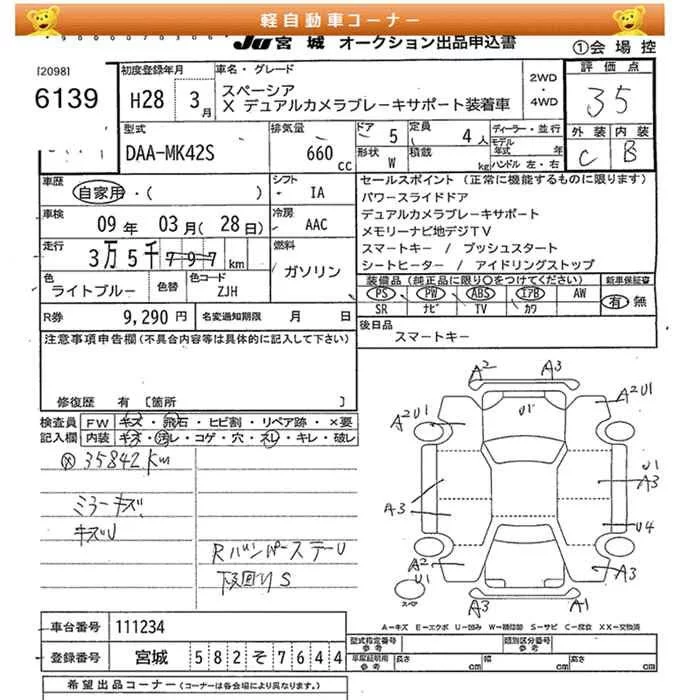 軽自動車コーナー
JU 宮城 オークション出品申込書
①会場控
[2098]
6139
初度登録年月
H28 3月
車名・グレード
スペーシア
X デュアルカメラブレーキサポート装着車
2WD
・4WD
評価点
3 5
外装 内装
C B
型式
DAA-MK42S
排気量
660 cc
ドア 5
定員 4人
形状 W
積載 kg
ディーラー・並行
モデル年式 年
ハンドル 左・右
車歴
自家用・( )
シフト
IA
車検
09年 03月(28日)
冷房
AAC
走行
3万5千797km
燃料
ガソリン
色
ライトブルー
色替
色コード
ZJH
R券 9,290円
名変通知期限 月 日
セールスポイント (正常に機能するものに限ります)
パワースライドドア
デュアルカメラブレーキサポート
メモリーナビ地デジTV
スマートキー / プッシュスタート
シートヒーター / アイドリングストップ
装備品 (純正品に限り○をつけてください)
新車保証書
PS PW ABS エアB AW
SR ナビ TV カワ
有・無
後日品
スマートキー
注意事項申告欄 (不具合内容等は具体的に記入して下さい)
修復歴 有 [箇所 ]
検査員
記入欄
FW キズ・飛石・ヒビ割・リペア跡・×要
内装 キズ・汚レ・コゲ・穴・スレ・キレ・破レ
※35842km
ミラーキズ
キズU
RバンパーステーU
下回りS
A2 A3
A2U1 U1 A2U1
U1
A3 A3
U4
A2
U1 A3
スペア
A3 A1
A-キズ E-エクボ U-凹み W-補修跡 S-サビ C-腐食 XX-交換済
車台番号 111234
登録番号 宮城 582そ7644
型式指定番号
参考
類別区分番号
参考
車庫証明用
参考
長さ cm 幅 cm 高さ cm
希望出品コーナー (コーナーは各会場により異なります。)